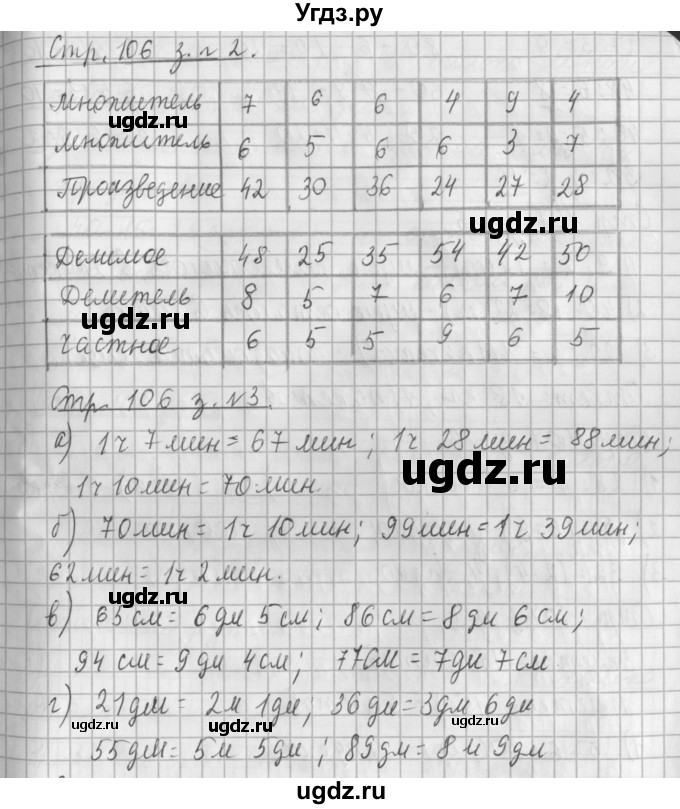 Угдз.ру
Стр. 106 з. № 2.
Множитель 7 6 6 4 9 4
ugdz.ru
Множитель 6 5 6 6 3 7
Произведение 42 30 36 24 27 28
ugdz.ru
Делимое 48 25 35 54 42 50
Делитель 8 5 7 6 7 10
ugdz.ru
Частное 6 5 5 9 6 5
Стр. 106 з. №3.
а) 1ч 7мин = 67мин; 1ч 28мин = 88мин;
ugdz.ru
1ч 10мин = 70мин.
б) 70мин = 1ч 10мин; 99мин = 1ч 39мин;
62мин = 1ч 2мин.
ugdz.ru
в) 65см = 6дм 5см; 86см = 8дм 6см;
94см = 9дм 4см; 77см = 7дм 7см
г) 21дм = 2м 1дм; 36дм = 3дм 6дм
ugdz.ru ugdz.ru
55дм = 5м 5дм; 89дм = 8м 9дм
ugdz.ru